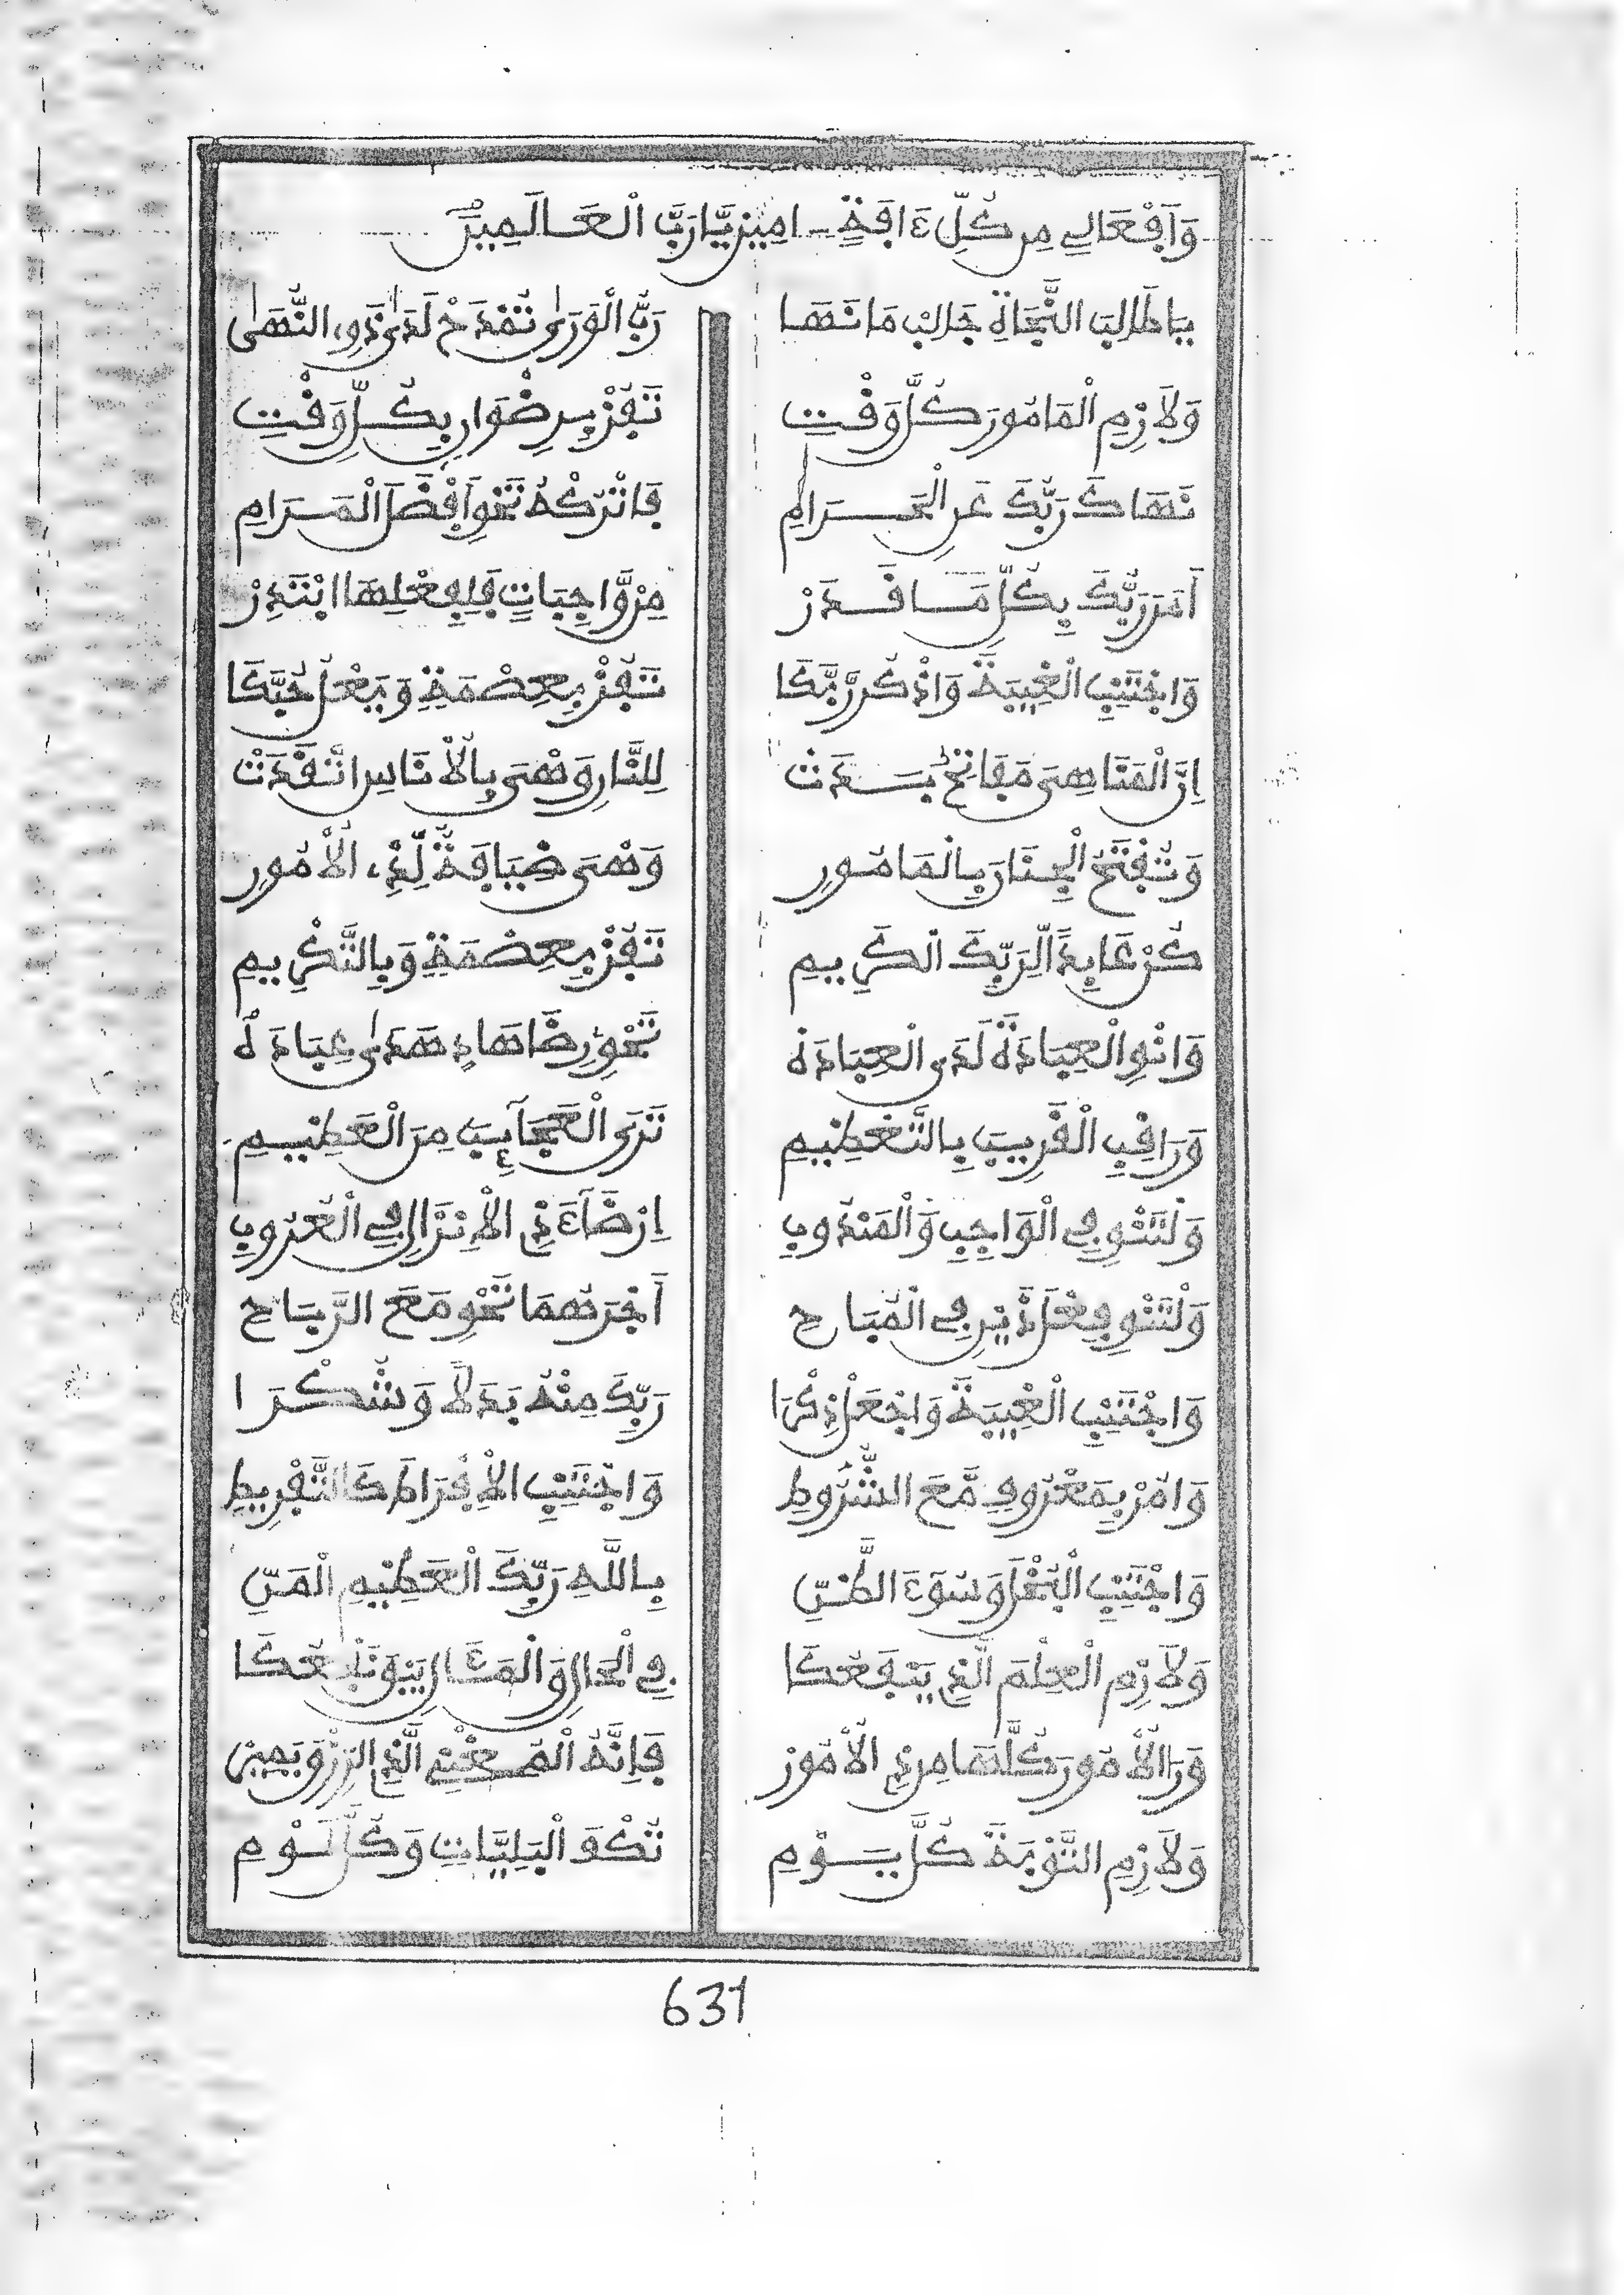 وَأَفْعَالِي مِن كُلِّ ءَافَةٍ ـ امِين يَّارَبَّ الْعَالَمِينَ
يَا طَالِبَ النَّجَاةِ جَانِبْ مَا نَهَى رَبُّ الْوَرَى تُمْدَحْ لَدَى ذَوِي النُّهَى
وَلَازِمِ الْمَامُورَ كُلَّ وَقْتِ تَفُزْ بِرِضْوَانٍ بِكُلِّ وَقْتِ
نَهَاكَ رَبُّكَ عَنِ الْحَرَامِ فَاتْرُكْهُ تَحْوِ أَفْضَلَ الْمَرَامِ
أَمَرَ رَبُّكَ بِكُلِّ مَا قَدَرْ مِن وَّاجِبَاتٍ فَلِفِعْلِهَا ابْتَدِرْ
وَاجْتَنِبِ الْغِيبَةَ وَاذْكُر رَّبَّكَا تَفُزْ بِعِصْمَةٍ وَيَعْلُ حُبُّكَا
إِنَّ الْمَنَاهِيَ مَفَاتِحُ بَدَتْ لِلنَّارِ وَهْيَ بِالْأُنَاسِ اتَّقَدَتْ
وَتُفْتَحُ الْجِنَانُ بِالْمَامُورِ وَهْيَ ضِيَافَةٌ لِّذِي الْأُمُورِ
كُنْ عَابِدًا لِّرَبِّكَ الْكَرِيمِ تَفُزْ بِعِصْمَةٍ وَبِالتَّكْرِيمِ
وَانْوِ الْعِبَادَةَ لَدَى الْعِبَادَهْ تَحْوِ رِضَا هَادٍ هَدَى عِبَادَهُ
وَرَاقِبِ الْقَرِيبَ بِالتَّعْظِيمِ تَرَى الْعَجَائِبَ مِنَ الْعَظِيمِ
وَلْتَنْوِ فِي الْوَاجِبِ وَالْمَنْدُوبِ إِرْضَاءَ ذِي الْإِنْزَالِ فِي الْغُرُوبِ
وَلْتَنْوِ فِعْلَ ذَيْنِ فِي الْمُبَاحِ أَجْرَهُمَا تَحْوِ مَعَ الرَّبَاحِ
وَاجْتَنِبِ الْغِيبَةَ وَاجْعَلْ ذِكْرَا رَبِّكَ مِنْهُ بَدَلًا وَشُكْرَا
وَامُرْ بِمَعْرُوفٍ مَّعَ الشُّرُوطِ وَاجْتَنِبِ الْإِفْرَاطَ كَالتَّفْرِيطِ
وَاجْتَنِبِ الْبُخْلَ وَسُوءَ الظَّنِّ بِاللَّهِ رَبِّكَ الْعَظِيمِ الْمَنِّ
وَلَازِمِ الْعِلْمَ الَّذِي يَنْفَعُكَا فِي الْحَالِ وَالْمَئَالِ
وَرَا الْأُمُورَ كُلَّهَا مِن ذِي الْأُمُورْ فَإِنَّهُ الْمُغْنِي الَّذِي الرِّزْقَ يَمِيرْ
وَلَازِمِ التَّوْبَةَ كُلَّ يَوْمِ تُكْفَ الْبَلِيَّاتِ وَكُلَّ لَوْمِ
631